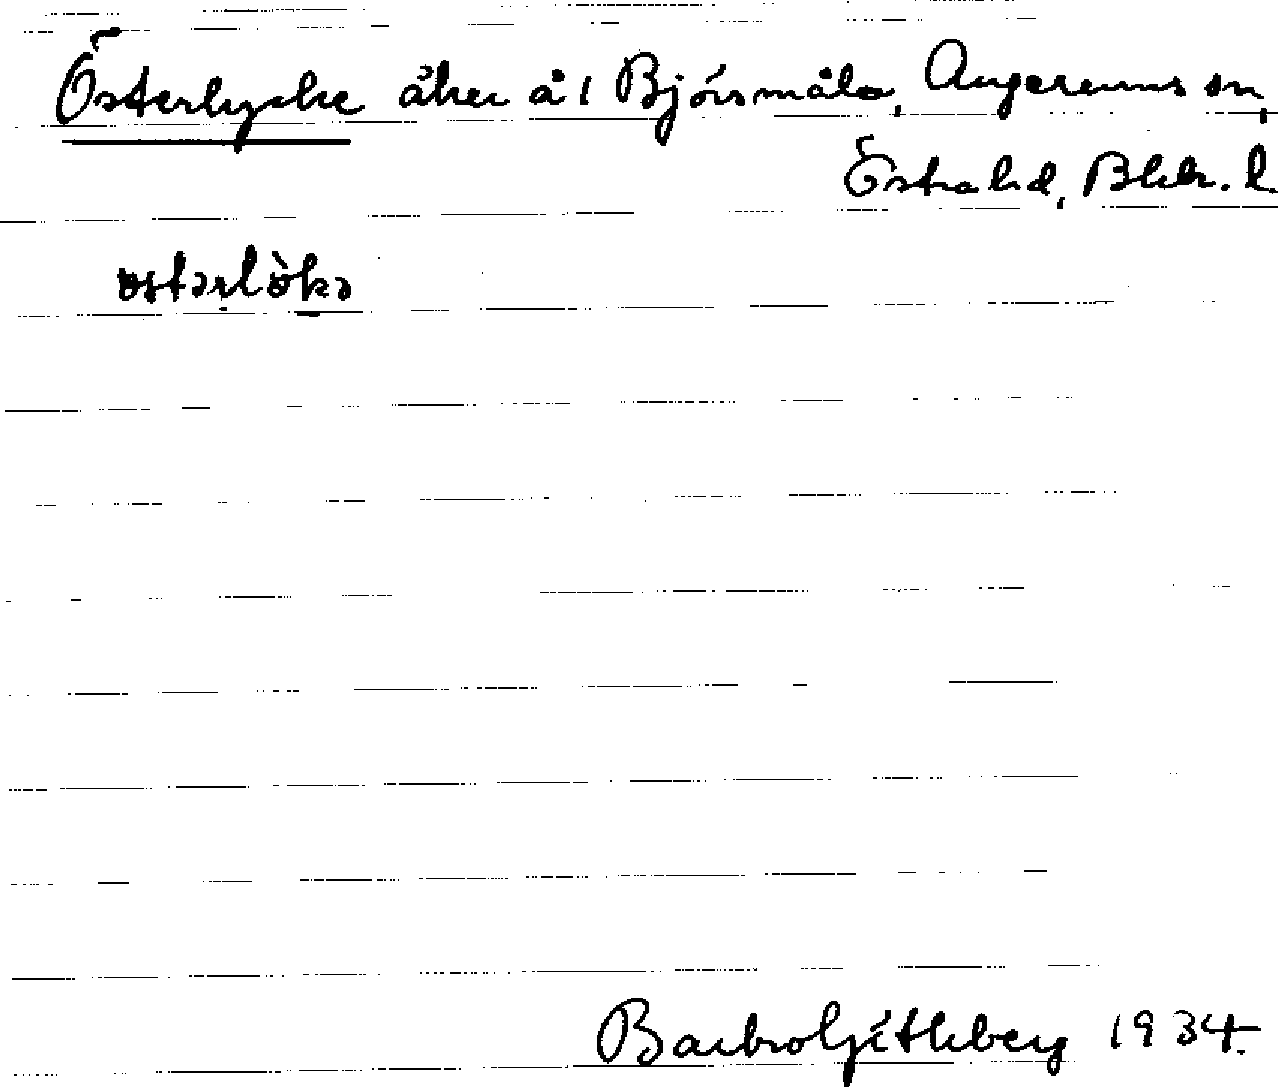 Österlycke åker å 1 Björsmåla, Augerums sn,
Östra hd, Blek. l.
østərlökə
Barbro Götheberg 1934.